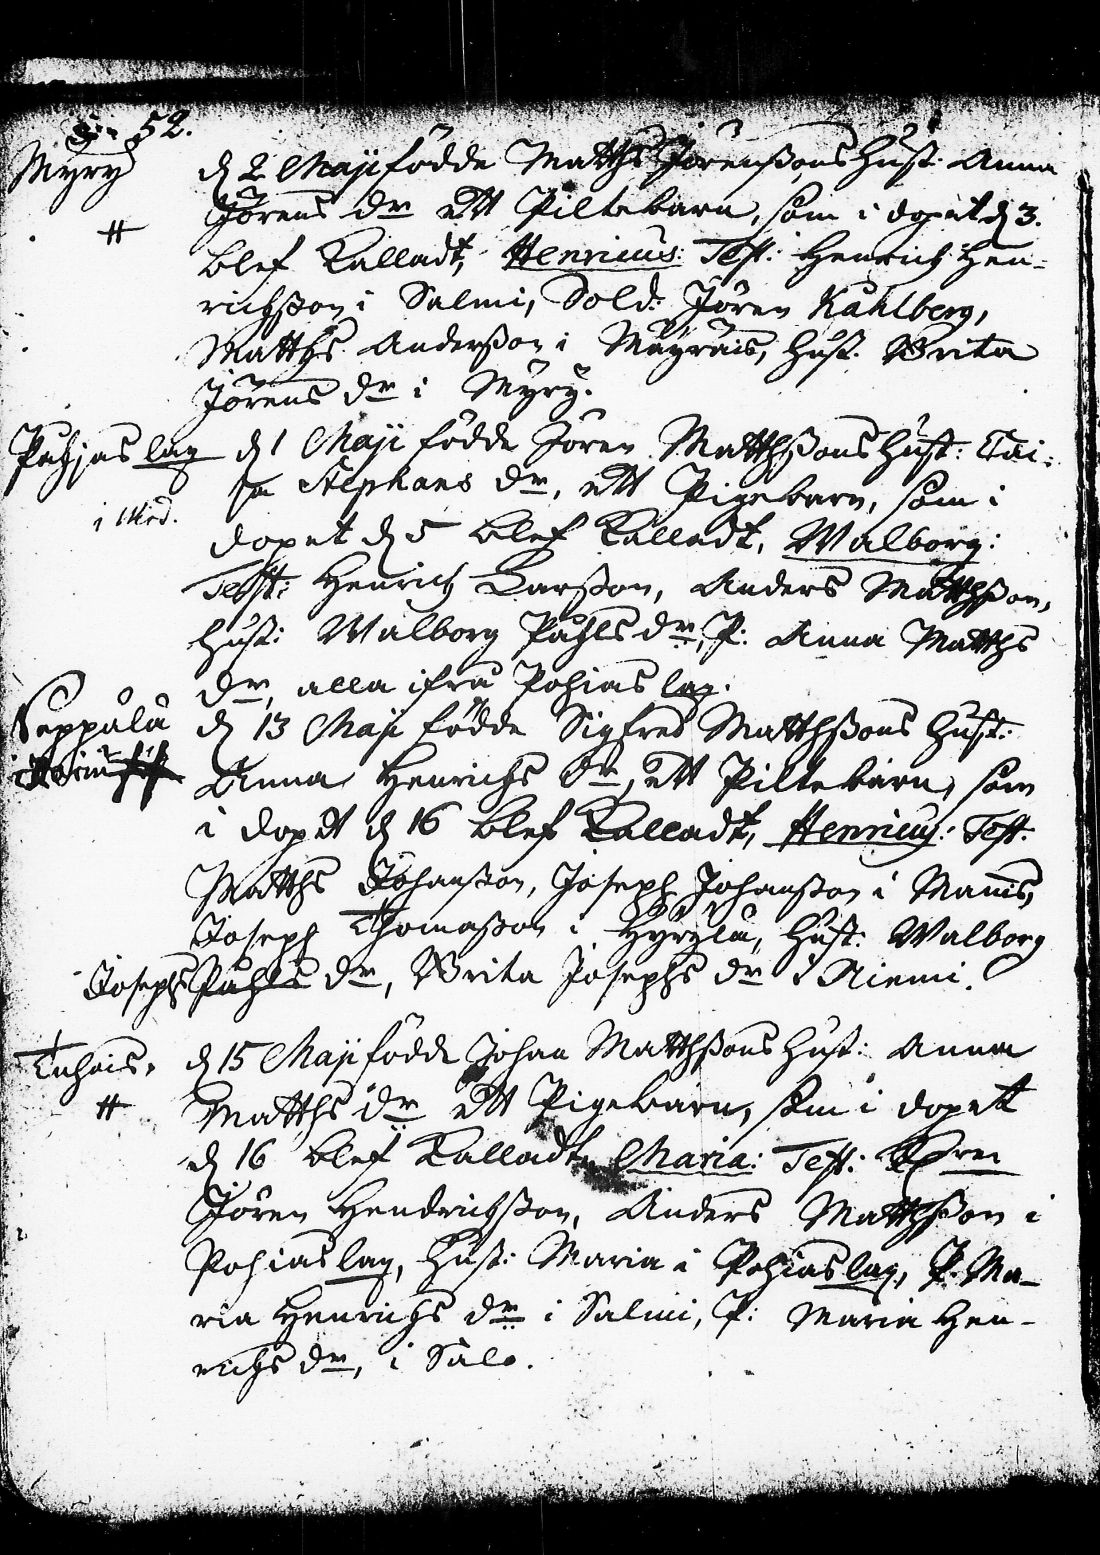 52.
Myry
d 2 Maji födde Matths Jörenssons Hust. Anna
Jörens dr ett Piltebarn, som i dopet d 3.
blef Kalladt, Henricus: Test: Henrich Hen-
richsson i Salmi, Sold: Jören Kahlberg,
Matths Andersson i Mäyräis, Hust. Brita
Jörens dr i Myry.
Påhjaslag
d 1 Maji födde Jören Matthssons Hust: Cai-
sa Stephans dr, ett Pigebarn, som i
dopet d 5 blef Kalladt, Walborg:
Test: Henrich Larsson, Anders Matthsson,
Hust: Walborg Påhls dr, P: Anna Matths
dr, alla ifrå Pohiaslag.
Seppälä
d 13 Maji födde Sigfred Matthssons Hust:
Anna Henrichs dr, ett Piltebarn, som
i dopet d 16 blef Kalladt, Henricus: Test:
Matths Johansson, Joseph Johansson i Mannis,
Joseph Thomasson i Hyrylä, Hust: Walborg
Josephs Påhls dr, Brita Josephs dr i Niemi.
Tuhais.
d 15 Maji födde Johan Matthssons Hust: Anna
Matths dr ett Pigebarn, som i dopet
d 16 blef Kalladt, Maria: Test:
Jören Hendrichsson, Anders Matthsson i
Pohiaslag, Hust: Maria i Pohiaslag, P: Ma-
ria Henrichs dr i Salmi, P: Maria Hen-
richs dr, i Salo.